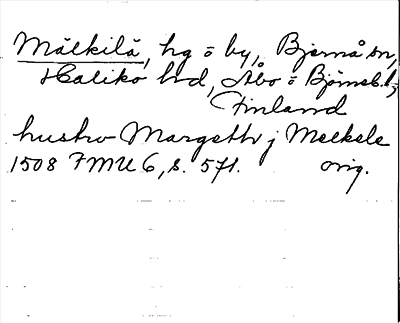 Mälkilä, hg o by, Bjernå sn,
Halikko hd, Åbo o Björneb. l,
Finland
hustro Margeth j Melkele
1508 FMU 6, s. 571. orig.